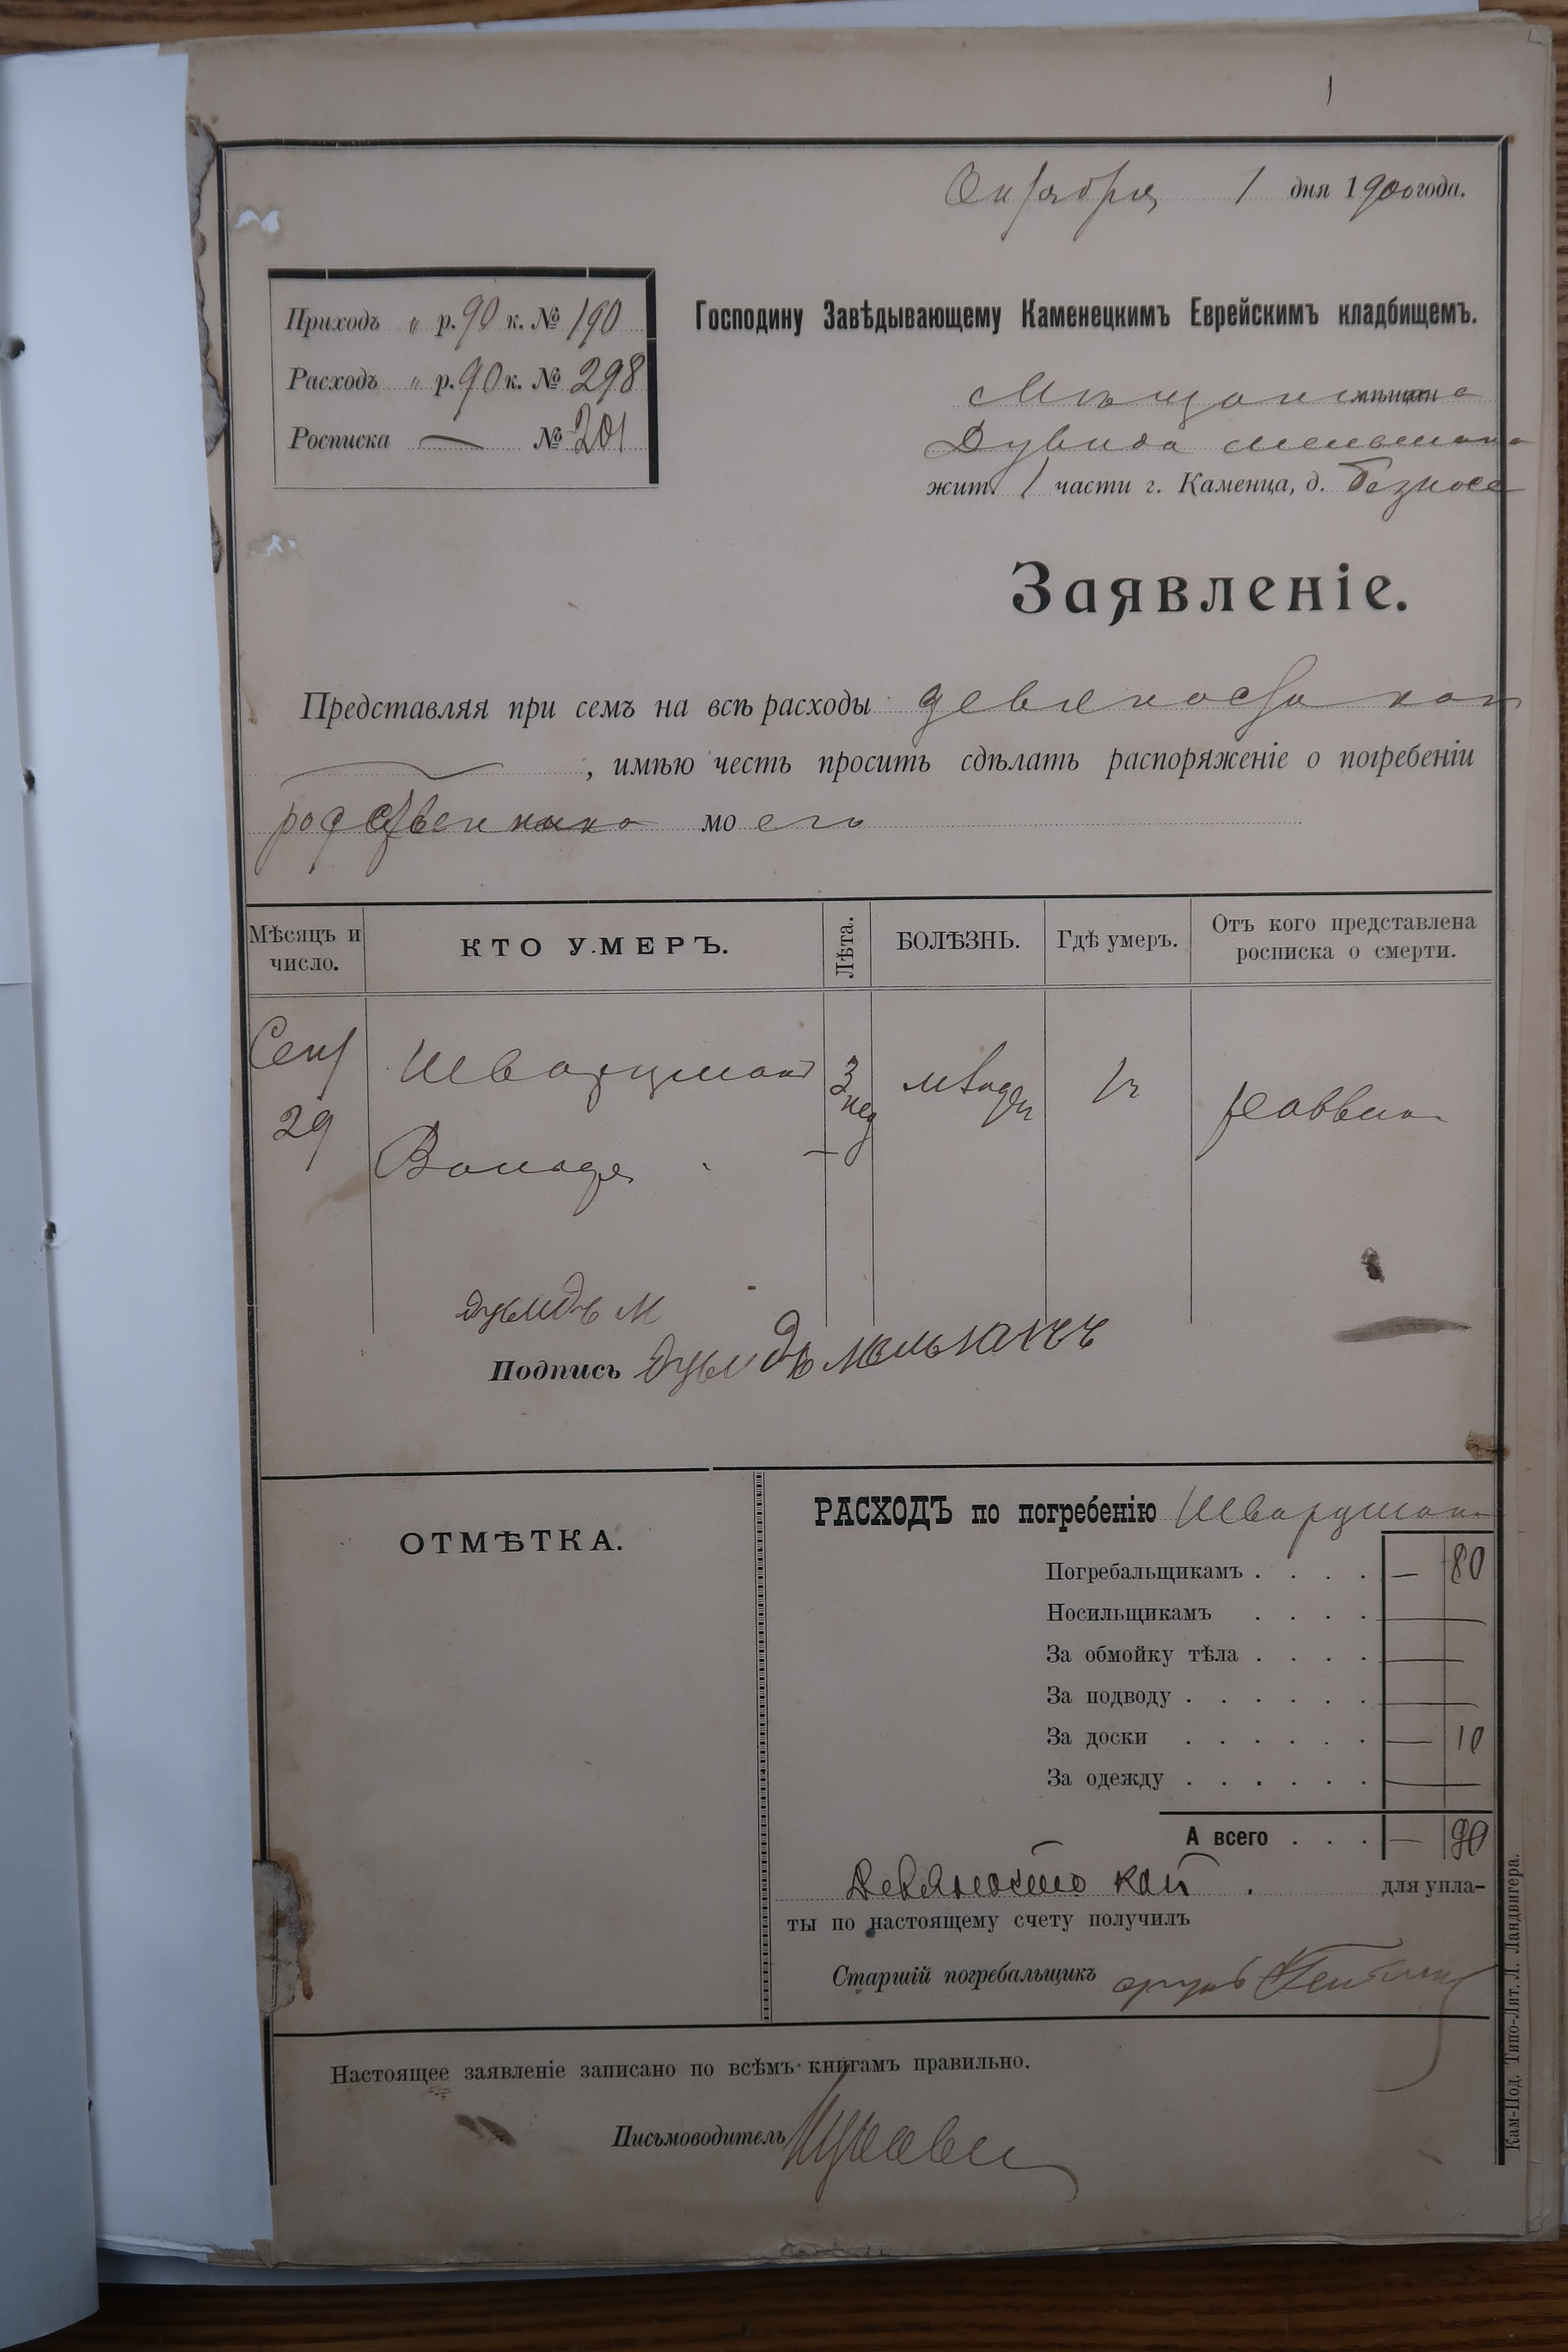 1
Октября 1 дня 1900 года.
Приходъ " р. 90 к. № 190
Расходъ " р. 90 к. № 298
Росписка — № 201
Господину Завѣдывающему Каменецкимъ Еврейскимъ кладбищемъ.
Дувида
жит. 1 части г. Каменца, д.
Заявленіе.
Представляя при семъ на всѣ расходы девяносто коп
, имѣю честь просить сдѣлать распоряженіе о погребеніи
родственника моего
Мѣсяцъ и число.
КТО УМЕРЪ.
Лѣта.
БОЛѢЗНЬ.
Гдѣ умеръ.
Отъ кого представлена росписка о смерти.
Сент
29
Шварцман
3 нед
раввина
дувидъ М
Подпись дувидъ
ОТМѢТКА.
РАСХОДЪ по погребенію Шварцман
Погребальщикамъ . . . . — 80
Носильщикамъ . . . . —
За обмойку тѣла . . . . —
За подводу . . . . . . —
За доски . . . . . . — 10
За одежду . . . . . . —
А всего . . . — 90
Девяносто коп . для упла-
ты по настоящему счету получилъ
Старшій погребальщикъ
Настоящее заявленіе записано по всѣмъ книгамъ правильно.
Письмоводитель
Кам-Под. Типо-Лит. Л. Ландвигера.